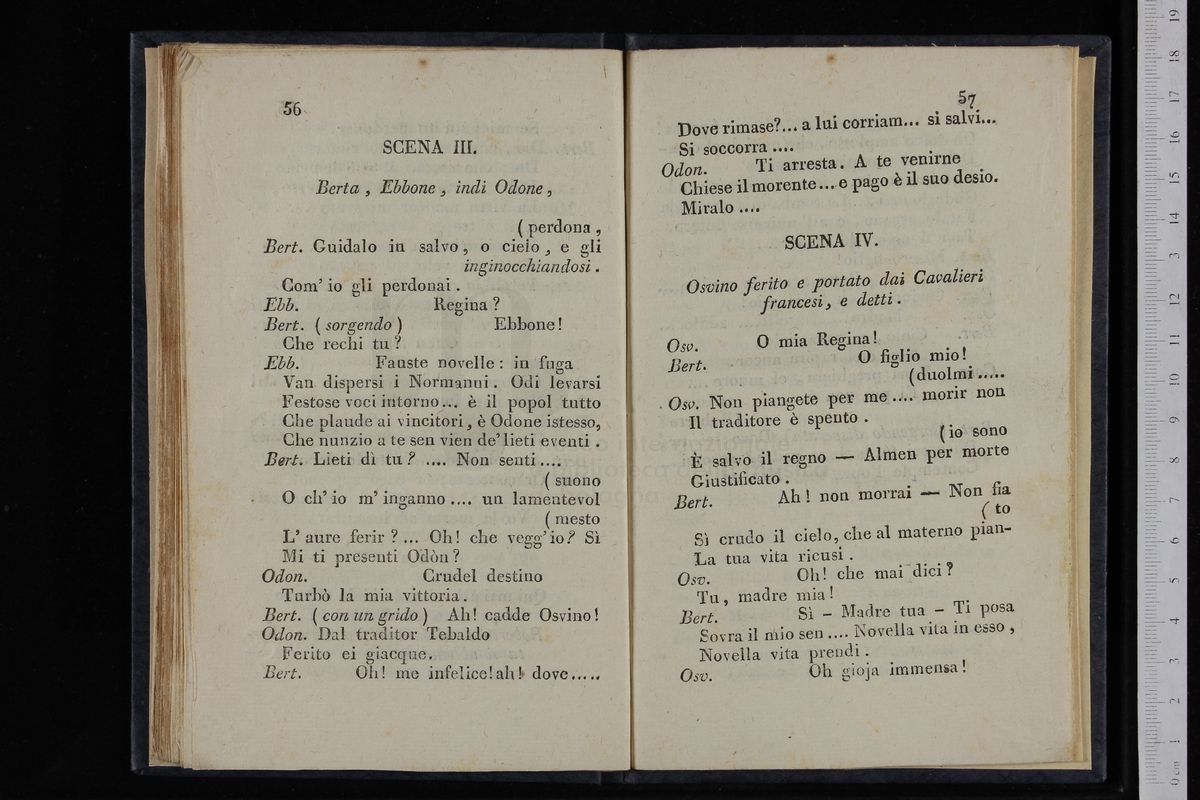 56
SCENA III.
Berta, Ebbone, indi Odone,
( perdona,
Bert. Guidalo in salvo, o cielo, e gli
inginocchiandosi.
Com' io gli perdonai.
Ebb. Regina?
Bert. ( sorgendo ) Ebbone!
Che rechi tu?
Ebb. Fauste novelle: in fuga
Van dispersi i Normanni. Odi levarsi
Festose voci intorno... è il popol tutto
Che plaude ai vincitori, è Odone istesso,
Che nunzio a te sen vien de' lieti eventi.
Bert. Lieti di tu? .... Non senti....
( suono
O ch' io m' inganno.... un lamentevol
( mesto
L' aure ferir?... Oh! che vegg' io? Sì
Mi ti presenti Odòn?
Odon. Crudel destino
Turbò la mia vittoria.
Bert. ( con un grido ) Ah! cadde Osvino!
Odon. Dal traditor Tebaldo
Ferito ei giacque.
Bert. Oh! me infelice! ah! dove.....
57
Dove rimase?... a lui corriam... si salvi...
Si soccorra....
Odon. Ti arresta. A te venirne
Chiese il morente... e pago è il suo desio.
Miralo....
SCENA IV.
Osvino ferito e portato dai Cavalieri
francesi, e detti.
Osv. O mia Regina!
Bert. O figlio mio!
(duolmi.....
Osv. Non piangete per me.... morir non
Il traditore è spento.
(io sono
È salvo il regno — Almen per morte
Giustificato.
Bert. Ah! non morrai — Non fia
( to
Sì crudo il cielo, che al materno pian-
La tua vita ricusi.
Osv. Oh! che mai dici?
Tu, madre mia!
Bert. Sì - Madre tua - Ti posa
Sovra il mio sen.... Novella vita in esso,
Novella vita prendi.
Osv. Oh gioja immensa!
0 cm 1 2 3 4 5 6 7 8 9 10 11 12 13 14 15 16 17 18 19